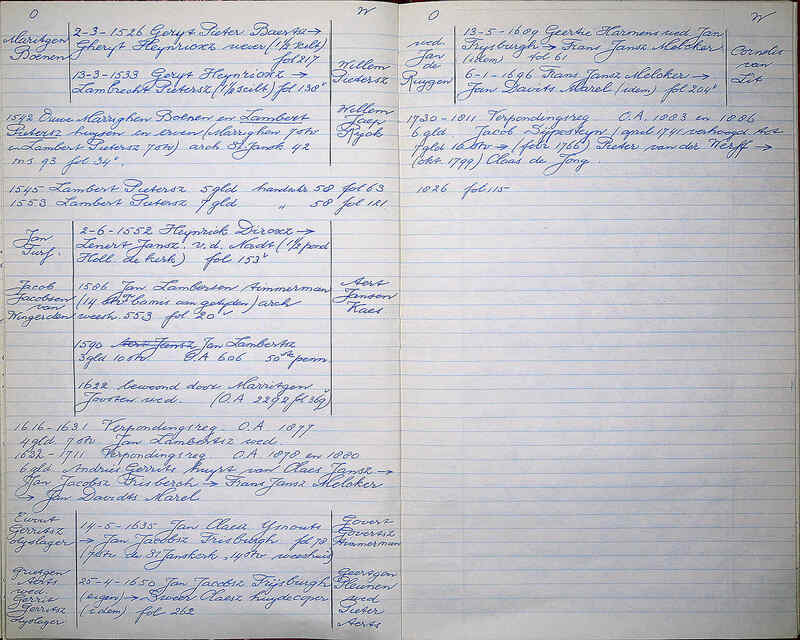 O W
Maritgen
Boenen
2-3-1526 Geryt Pieter Baertsz →
Gheryt Heynricxz wever (1/2 scilt)
fol 217
13-3-1533 Geryt Heynricxz →
Lambrecht Pietersz (1/2 scilt) fol 138v
Willem
Pietersz
1542 Ouwe Marryghen Boenen en Lambert
Pietersz huysen en erven (Marryghen 70 st
en Lambert Pietersz 70 st) arch St Jansk 42
ms 93 fol 34v.
Willem
Jaep
Rijck
1545 Lambert Pietersz 5 gld handschr 58 fol 63
1553 Lambert Pietersz 7 gld " 58 fol 121
Jan
Turf.
2-6-1552 Heynrick Dircxz →
Lenert Jansz. v.d. Nordt (1/2 pond
Holl. de kerk) fol 153v
Jacob
Jacobsen
van
Wingerden
1586 Jan Lambertsen timmerman
(14 bamis aen getyden) arch
weesh. 553 fol 20v
Aert
Jansen
Kaes
1590 Aert Jansz Jan Lambertsz
3 gld 10 stv. O.A 606 50ste penn
1622 bewoond door Marritgen
Joosten wed. (O.A 2292 fol 369v)
1616-1631 Verpondingsreg. O.A. 1877
4 gld 7 stv. Jan Lambertsz wed.
1632-1711 Verpondingsreg. O.A 1878 en 1880
6 gld Andries Gerrits huyst van Claes Jansz →
Jan Jacobsz Frisbergh → Frans Jansz Melcker
→ Jan Davidts Marel
Ewout
Gerritsz
olyslager
14-5-1635 Jan Claesz IJsnouts
→ Jan Jacobsz Frisburgh fol 78
(7 stv de St Janskerk, 14 stv weeshuis)
Govert
Govertsz
timmerman
Grietgen
Aerts
wed.
Gerrit
Gerritsz
olyslager
25-4-1650 Jan Jacobsz Frijsburgh
(eigen) → Sweer Claesz huydecoper
(idem) fol 262
Geertgen
Pleunen
wed
Pieter
Aerts
O W
wed.
Jan
de
Ruygen
13-5-1689 Geertie Harmens wed Jan
Frijsburgh → Frans Jansz Melcker
(idem) fol 61
6-1-1696 Frans Jansz Melcker →
Jan Davits Marel (idem) fol 204v
Cornelis
van
Lit
1730-1811 Verpondingsreg O.A. 1883 en 1886
6 gld. Jacob Sijpesteyn (april 1741 verhoogd tot
7 gld 16 stv → (febr 1766) Pieter van der Werff →
(okt. 1799) Claas de Jong.
1826 fol 115